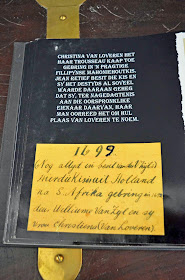 CHRISTINA VAN LOVEREN HET
HAAR TROUSSEAU KAAP TOE
GEBRING IN 'N PRAGTIGE
FILLIPYNSE MAHONIEHOUTKIS.
JEAN RETIEF BESIT DIE KIS EN
SY HET DESTYDS AL SOVEEL
WAARDE DAARAAN GEHEG
DAT SY, TER NAGEDAGTENIS
AAN DIE OORSPRONKLIKE
EIENAAR DAARVAN, HAAR
MAN OORREED HET OM HUL
PLAAS VAN LOVEREN TE NOEM.
1699.
altyd in besit van
uit Holland
na S. Afrika gebring
Willem van Zyl en sy
vrou Christiena (Van Loveren).